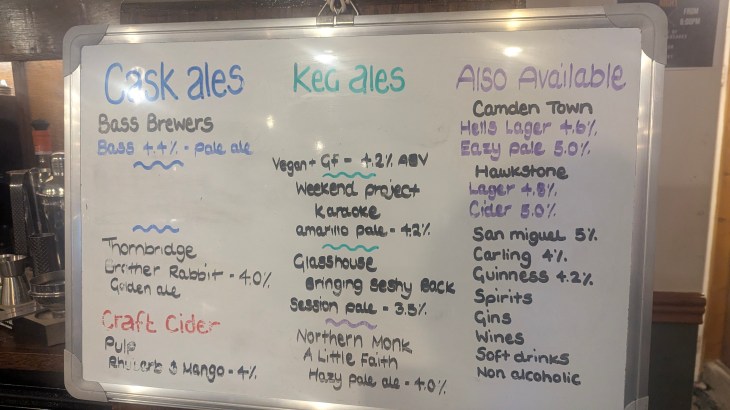 Cask ales
Bass Brewers
Bass 4.4% - pale ale
Thornbridge
Brother Rabbit - 4.0%
Golden ale
Craft Cider
Pulp
Rhubarb & Mango - 4%
Keg ales
Vegan + Gf - 4.2% ABV
Weekend project
Karaoke
amarillo pale - 4.2%
Glasshouse
Bringing Seshy Back
Session pale - 3.5%
Northern Monk
A Little Faith
Hazy pale ale - 4.0%
Also Available
Camden Town
Hells Lager 4.6%
Eazy pale 5.0%
Hawkstone
Lager 4.8%
Cider 5.0%
San miguel 5%
Carling 4%
Guinness 4.2%
Spirits
Gins
Wines
Soft drinks
Non alcoholic
FROM